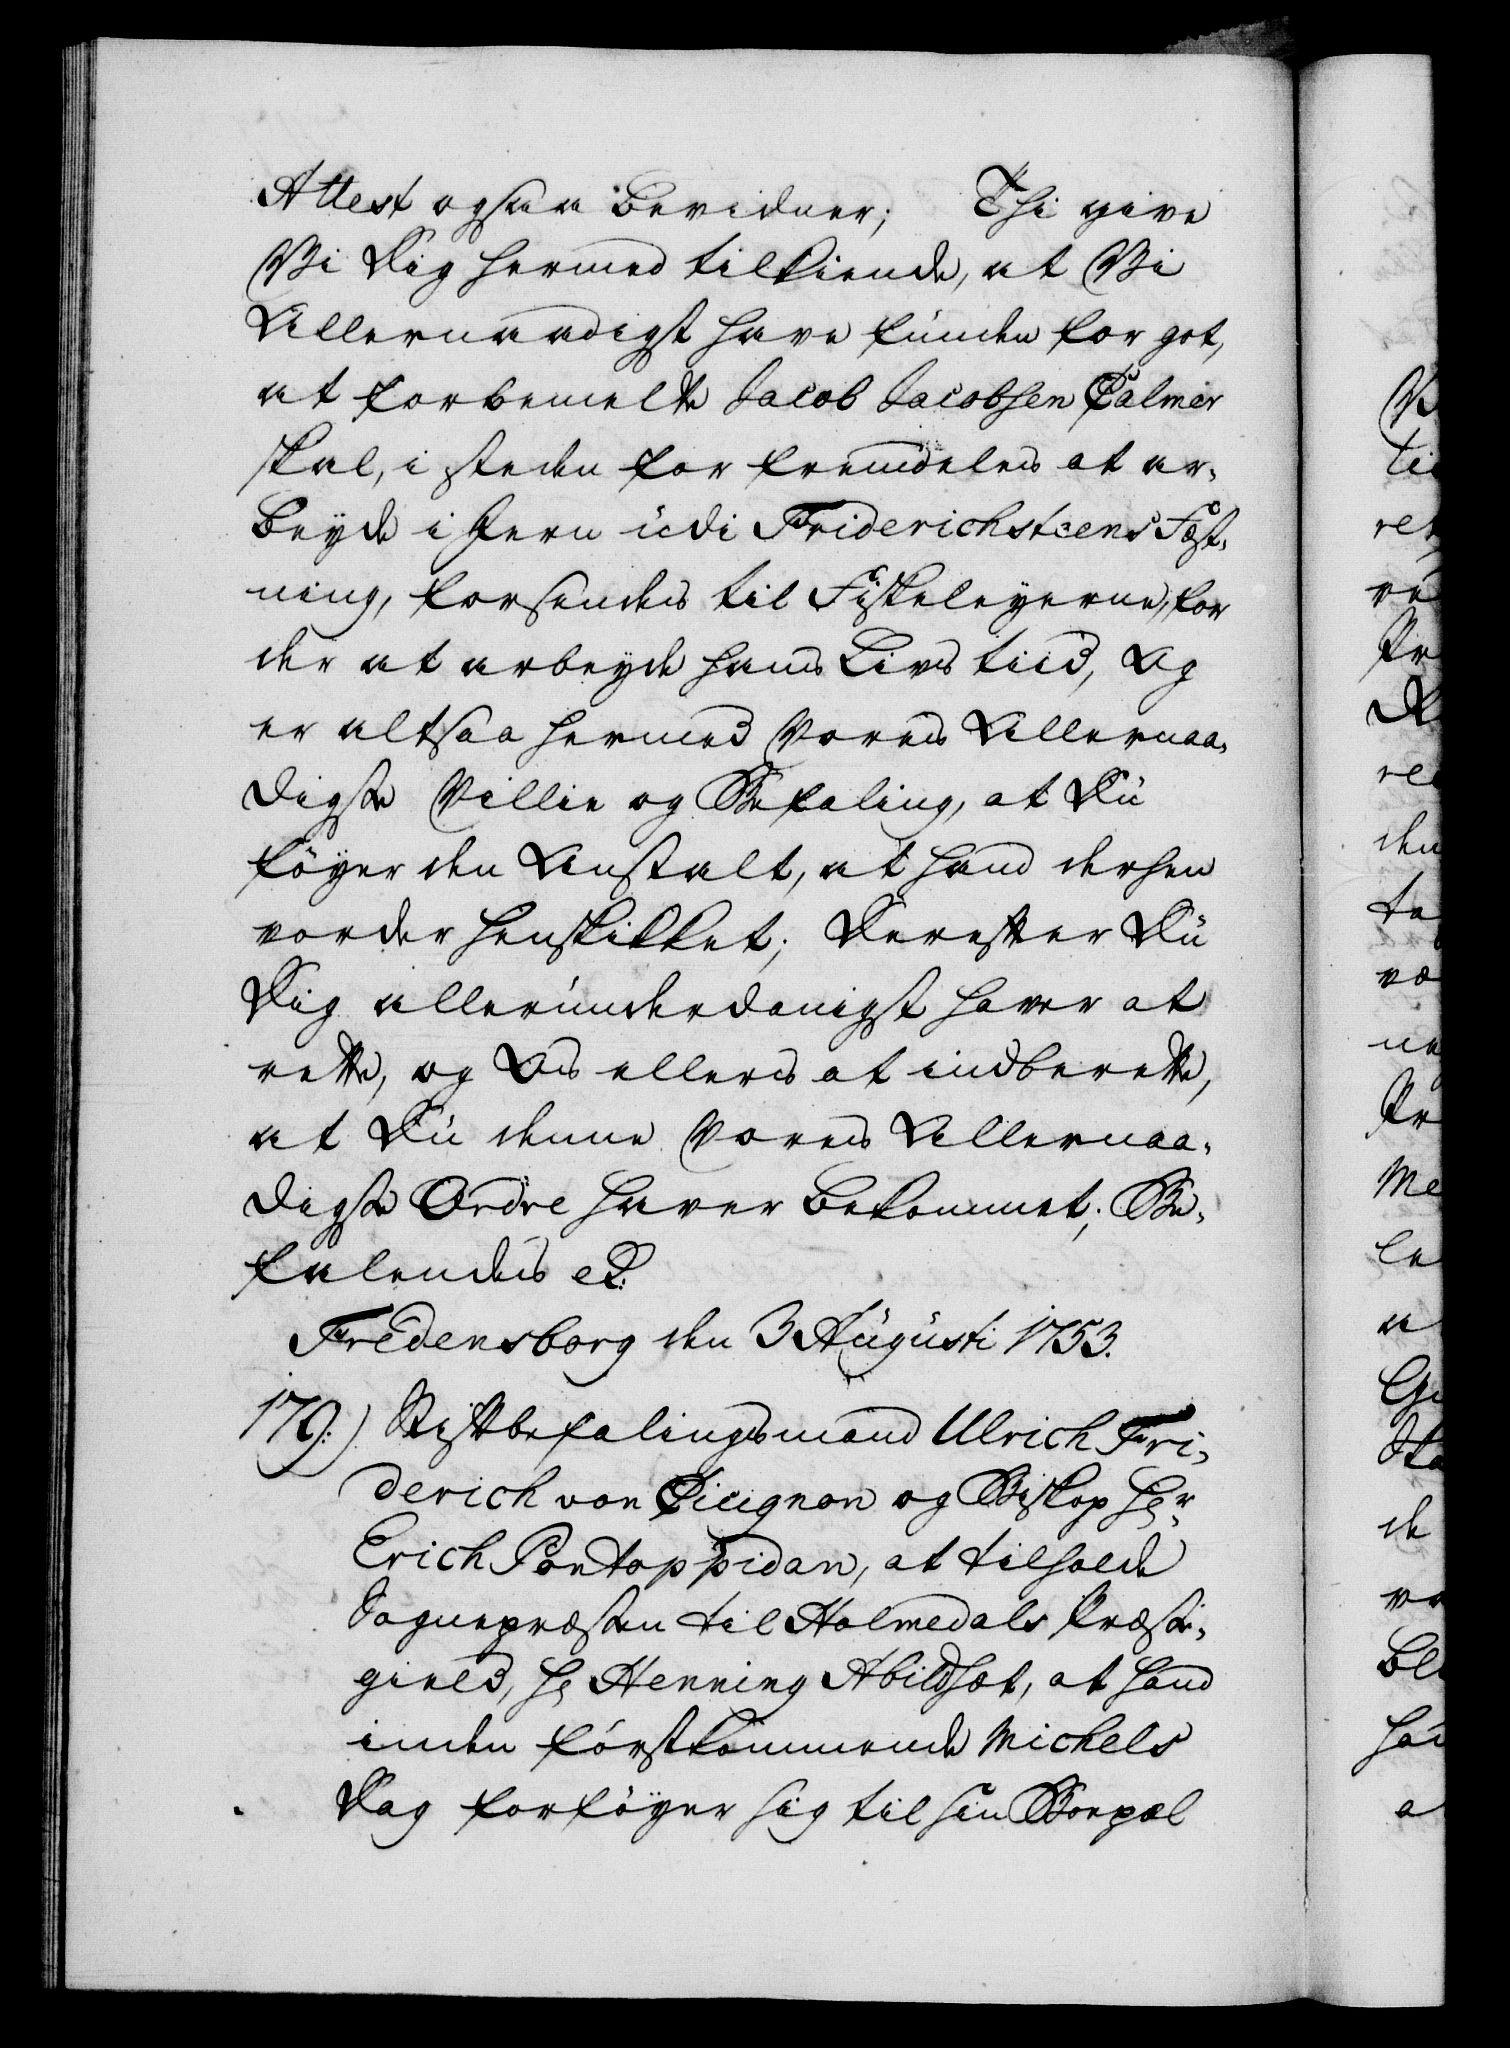 Attest ogsaa bevidner; Thi give
Vi Dig hermed tilkiende, at Vi
Allernaadigst have funden for got,
at forbemelte Jacob Jacobsen Palmer
skal, i steden for fremdeles at ar-
beyde i Jern udi Friderichsteens Fæst-
ning, forsendes til Fiskeleyerne, for
der at arbeyde hans Livs tiid, Og
er altsaa hermed Vores Allernaa-
digste Villie og Befaling, at Du
föyer den Anstalt, at hand derhen
vorder henskikket; Derefter Du
Dig allerunderdanigst haver at
rette, og Os ellers at indberette,
at Du denne Vores Allernaa-
digste Ordre haver bekommet; Be-
falendes etc:
Fredensborg den 3 Augusti 1753.
179.) Stiftbefalingsmand Ulrich Fri-
derich von Cicignon og Biskop Hr
Erich Pontoppidan, at tilholde
Sognepræsten til Holmedals Præste-
gield, Hr Henning Abildhot, at hand
inden förstkommende Michels
Dag forföyer sig til sin Boepæl